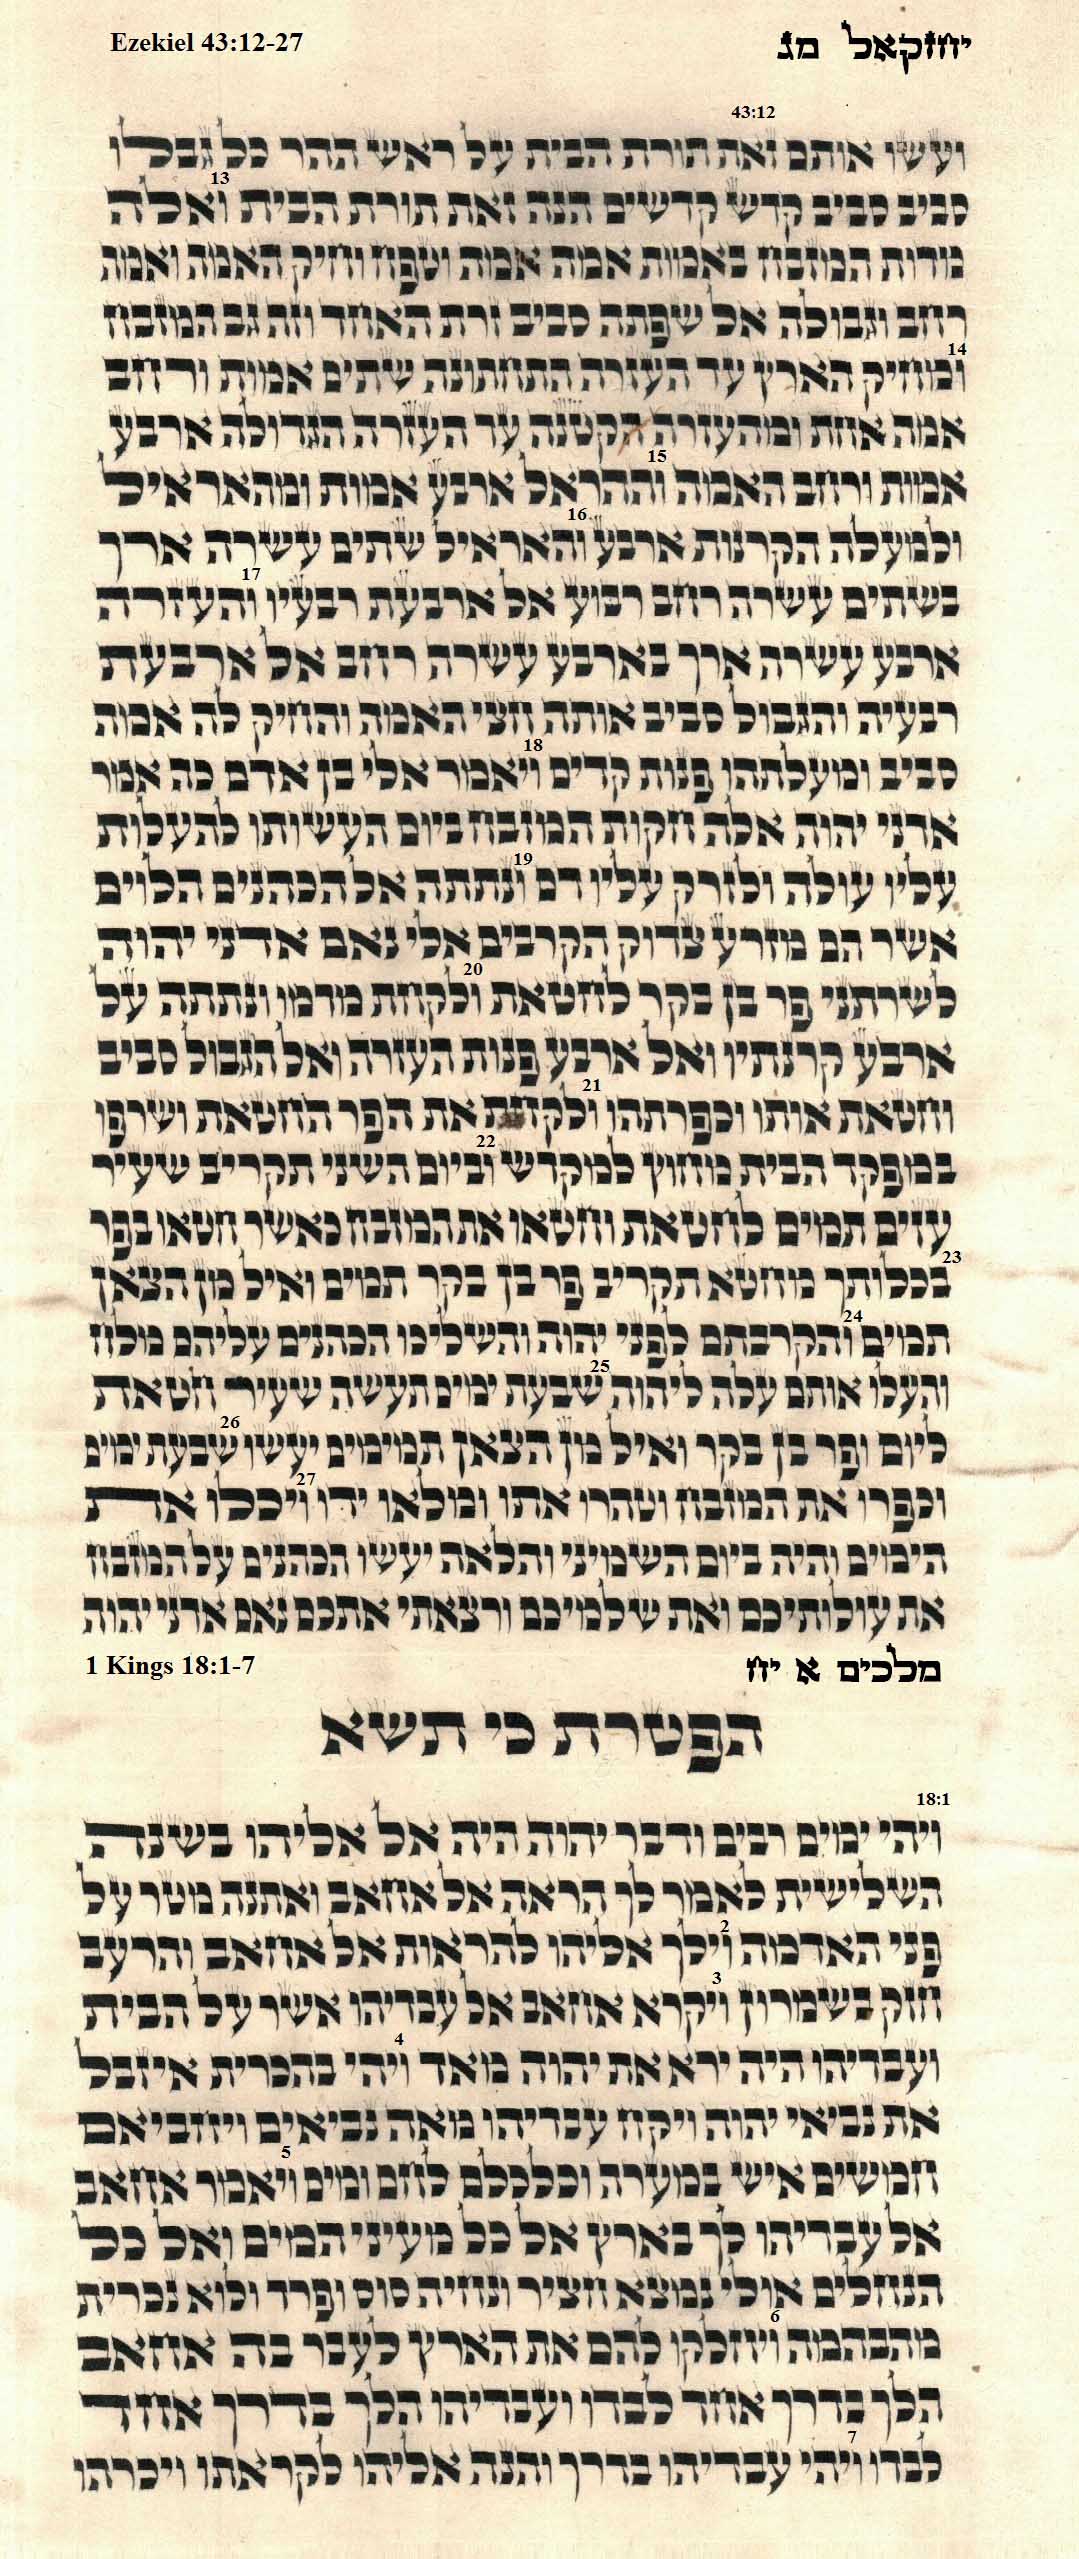 Ezekiel 43:12-27 יחזקאל מג
43:12
ועשו אותם זאת תורת הבית על ראש ההר כל גבלו
13
סביב סביב קדש קדשים הנה זאת תורת הבית ואלה
מדות המזבח באמות אמה אמה וטפח וחיק האמה ואמה
רחב וגבולה אל שפתה סביב זרת האחד וזה גב המזבח
14
ומחיק הארץ עד העזרה התחתונה שתים אמות ורחב
אמה אחת ומהעזרה הקטנה עד העזרה הגדולה ארבע
15
אמות ורחב האמה וההראל ארבע אמות ומהאראיל
16
ולמעלה הקרנות ארבע והאראיל שתים עשרה ארך
17
בשתים עשרה רחב רבוע אל ארבעת רבעיו והעזרה
ארבע עשרה ארך בארבע עשרה רחב אל ארבעת
רבעיה והגבול סביב אותה חצי האמה והחיק לה אמה
18
סביב ומעלתהו פנות קדים ויאמר אלי בן אדם כה אמר
אדני יהוה אלה חקות המזבח ביום העשותו להעלות
19
עליו עולה ולזרק עליו דם ונתתה אל הכהנים הלוים
אשר הם מזרע צדוק הקרבים אלי נאם אדני יהוה
20
לשרתני פר בן בקר לחטאת ולקחת מדמו ונתתה על
ארבע קרנתיו ואל ארבע פנות העזרה ואל הגבול סביב
21
וחטאת אותו וכפרתהו ולקחת את הפר החטאת ושרפו
22
במפקד הבית מחוץ למקדש וביום השני תקריב שעיר
עזים תמים לחטאת וחטאו את המזבח כאשר חטאו בפר
23
בכלותך מחטא תקריב פר בן בקר תמים ואיל מן הצאן
24
תמים והקרבתם לפני יהוה והשליכו הכהנים עליהם מלח
25
והעלו אותם עלה ליהוה שבעת ימים תעשה שעיר חטאת
26
ליום ופר בן בקר ואיל מן הצאן תמימים יעשו שבעת ימים
27
וכפרו את המזבח וטהרו אתו ומלאו ידו ויכלו את
הימים והיה ביום השמיני והלאה יעשו הכהנים על המזבח
את עולותיכם ואת שלמיכם ורצאתי אתכם נאם אדני יהוה
1 Kings 18:1-7 מלכים א יח
הפטרת כי תשא
18:1
ויהי ימים רבים ודבר יהוה היה אל אליהו בשנה
השלישית לאמר לך הראה אל אחאב ואתנה מטר על
2
פני האדמה וילך אליהו להראות אל אחאב והרעב
3
חזק בשמרון ויקרא אחאב אל עבדיהו אשר על הבית
4
ועבדיהו היה ירא את יהוה מאד ויהי בהכרית איזבל
את נביאי יהוה ויקח עבדיהו מאה נביאים ויחביאם
5
חמשים איש במערה וכלכלם לחם ומים ויאמר אחאב
אל עבדיהו לך בארץ אל כל מעיני המים ואל כל
הנחלים אולי נמצא חציר ונחיה סוס ופרד ולוא נכרית
6
מהבהמה ויחלקו להם את הארץ לעבר בה אחאב
הלך בדרך אחד לבדו ועבדיהו הלך בדרך אחד
7
לבדו ויהי עבדיהו בדרך והנה אליהו לקראתו ויכרהו